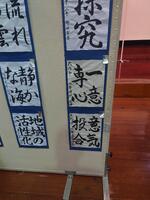 探究
一意
専心
意気
投合
流れ
雲
静か
な海
地域の
活性化